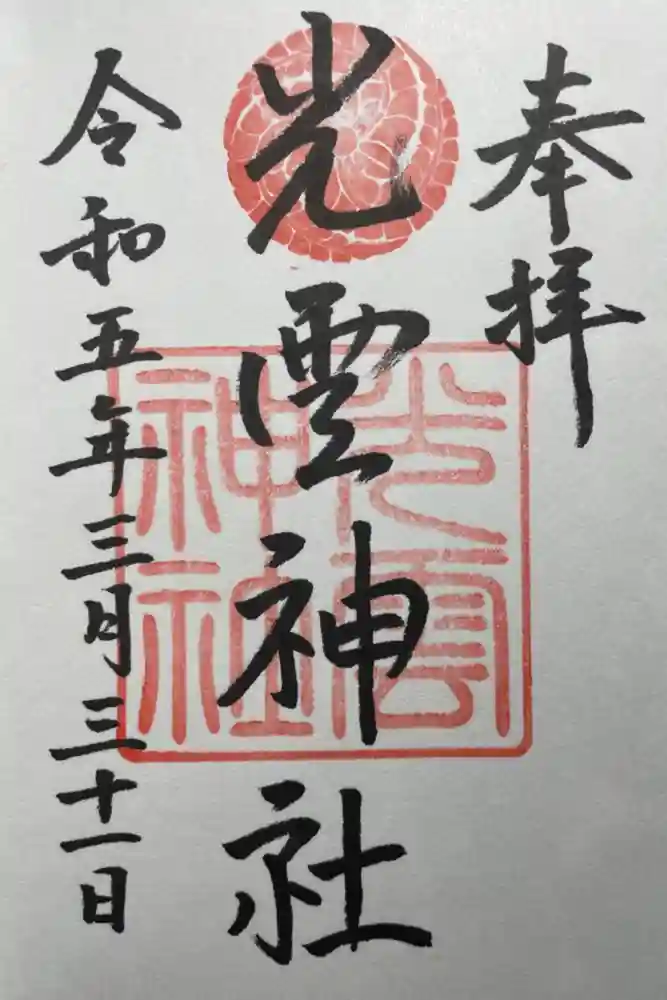 奉拝
光雲神社
光雲
神社
令和五年三月三十一日